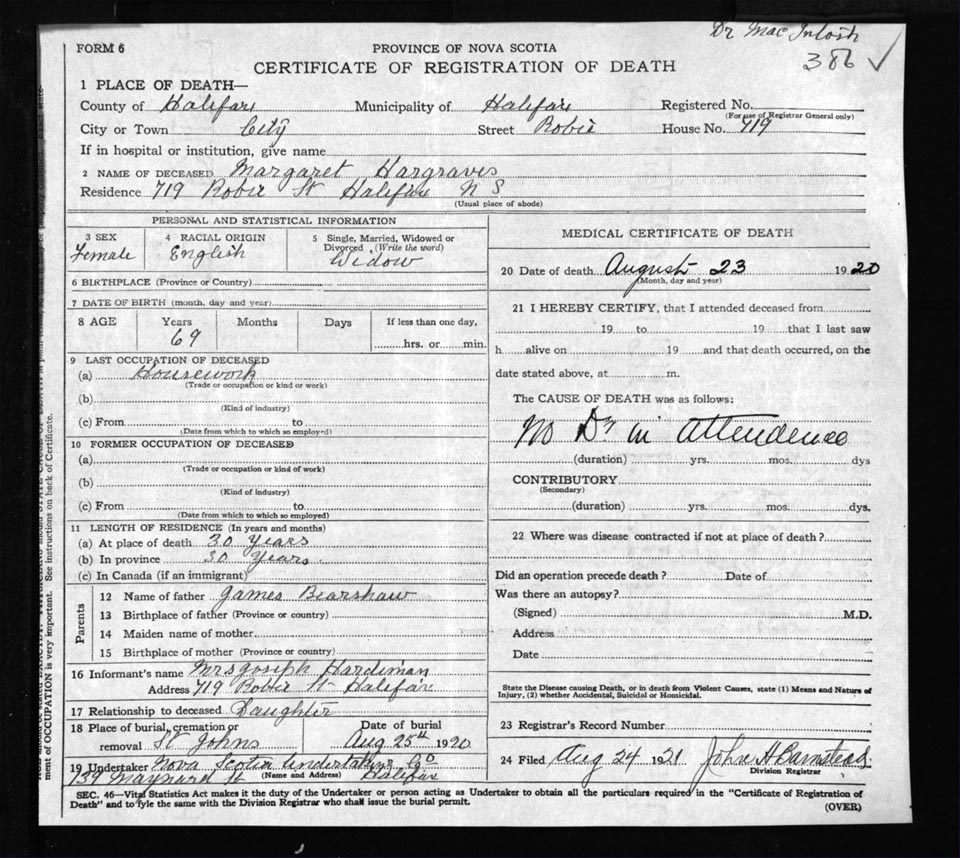 Dr MacIntosh
386 ✓
FORM 6
PROVINCE OF NOVA SCOTIA
CERTIFICATE OF REGISTRATION OF DEATH
1 PLACE OF DEATH—
County of Halifax Municipality of Halifax Registered No.
(For use of Registrar General only)
City or Town City Street Robie House No. 719
If in hospital or institution, give name
2 NAME OF DECEASED Margaret Hargraves
Residence 719 Robie St Halifax N S
(Usual place of abode)
PERSONAL AND STATISTICAL INFORMATION
3 SEX Female
4 RACIAL ORIGIN English
5 Single, Married, Widowed or Divorced (Write the word)
Widow
6 BIRTHPLACE (Province or Country)
7 DATE OF BIRTH (month, day and year)
8 AGE Years Months Days If less than one day,
69 hrs. or min.
9 LAST OCCUPATION OF DECEASED
(a) Housework
(Trade or occupation or kind or work)
(b)
(Kind of industry)
(c) From to
(Date from which to which so employed)
10 FORMER OCCUPATION OF DECEASED
(a)
(Trade or occupation or kind of work)
(b)
(Kind of industry)
(c) From to
(Date from which to which so employed)
11 LENGTH OF RESIDENCE (In years and months)
(a) At place of death 30 years
(b) In province 30 years
(c) In Canada (if an immigrant)
Parents
12 Name of father James Bearshaw
13 Birthplace of father (Province or country)
14 Maiden name of mother
15 Birthplace of mother (Province or country)
16 Informant's name Mrs Joseph Hardiman
Address 719 Robie St Halifax
17 Relationship to deceased Daughter
18 Place of burial, cremation or removal St Johns
Date of burial
Aug 25th 1920
19 Undertaker Nova Scotia Undertaking Co
139 Maynard St (Name and Address) Halifax
MEDICAL CERTIFICATE OF DEATH
20 Date of death August 23 1920
(Month, day and year)
21 I HEREBY CERTIFY, that I attended deceased from
19 to 19 that I last saw
h alive on 19 and that death occurred, on the
date stated above, at m.
The CAUSE OF DEATH was as follows:
No Dr in Attendence
(duration) yrs. mos. dys
CONTRIBUTORY
(Secondary)
(duration) yrs. mos. dys.
22 Where was disease contracted if not at place of death?
Did an operation precede death? Date of
Was there an autopsy?
(Signed) M.D.
Address
Date
State the Disease causing Death, or in death from Violent Causes, state (1) Means and Nature of
Injury, (2) whether Accidental, Suicidal or Homicidal.
23 Registrar's Record Number
24 Filed Aug 24 1921 John H Barnstead
Division Registrar
SEC. 46—Vital Statistics Act makes it the duty of the Undertaker or person acting as Undertaker to obtain all the particulars required in the "Certificate of Registration of
Death" and to fyle the same with the Division Registrar who shall issue the burial permit.
(OVER)
ment of OCCUPATION is very important. See instructions on back of Certificate.